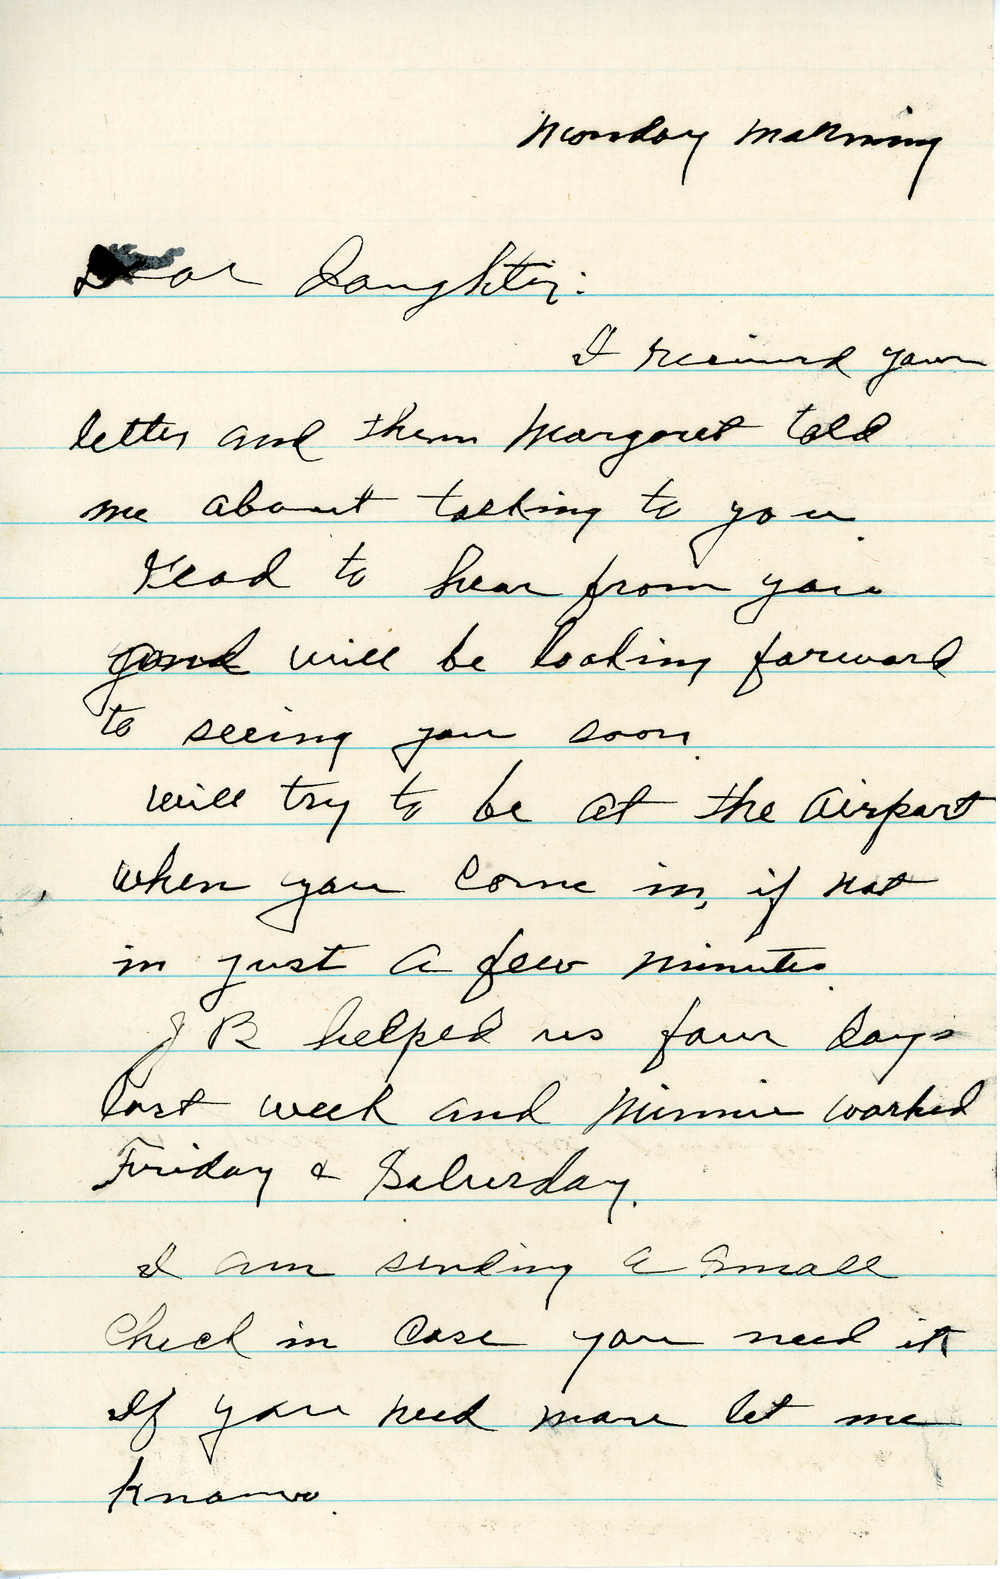 Monday Morning
Dear Daughter:
I received your
letter and then Margaret told
me about talking to you.
to hear from you
and will be looking forward
to seeing you soon.
Will try to be at the airport
when you come in, if not
in just a few minutes.
J B helped us four days
last week and Minnie worked
Friday & Saturday.
I am sending a small
Check in case you need it
If you need more let me
know.